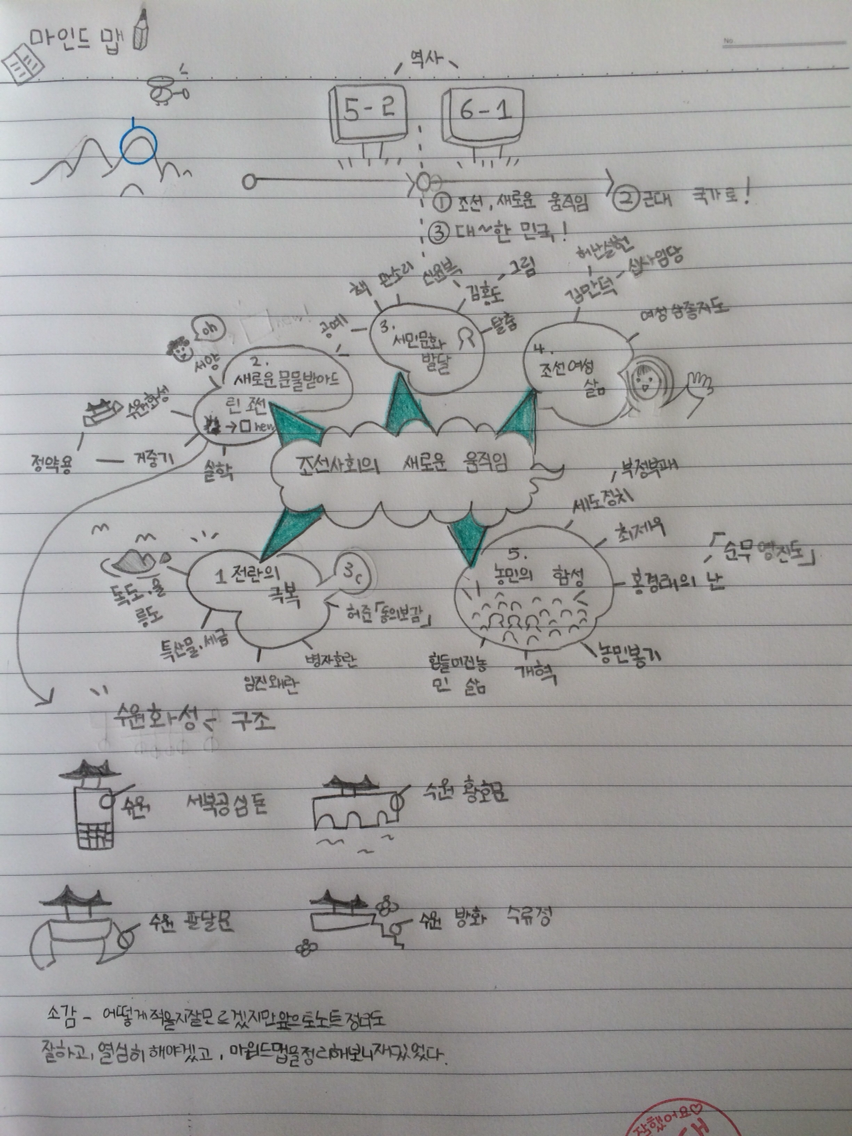 마인드 맵
역사
5-2
6-1
① 조선, 새로운 움직임 ② 근대 국가로!
③ 대~한 민국!
조선사회의 새로운 움직임
1 전란의
극복
3c
독도·울
릉도
특산물·세금
임진왜란
병자호란
허준「동의보감」
2.
새로운 문물받아드
린 조선
→ new
oh
서양
수원화성
정약용
거중기
실학
3.
서민문화
발달
공예
책
판소리
신윤복
김홍도
그림
탈춤
4.
조선여성
삶
김만덕
허난설헌
신사임당
여성삼종지도
5.
농민의 함성
세도정치
부정부패
최제우
홍경래의 난
「순무영진도」
농민봉기
개혁
힘들어진농
민 삶
수원화성 - 구조
수원 서북공심돈
수원 황호문
수원 팔달문
수원 방화 수류정
소감 - 어떻게적을지잘모르겠지만앞으로노트정리도
잘하고, 열심히 해야겠고, 마인드맵을정리해보니재밌었다.
No
잘했어요♡